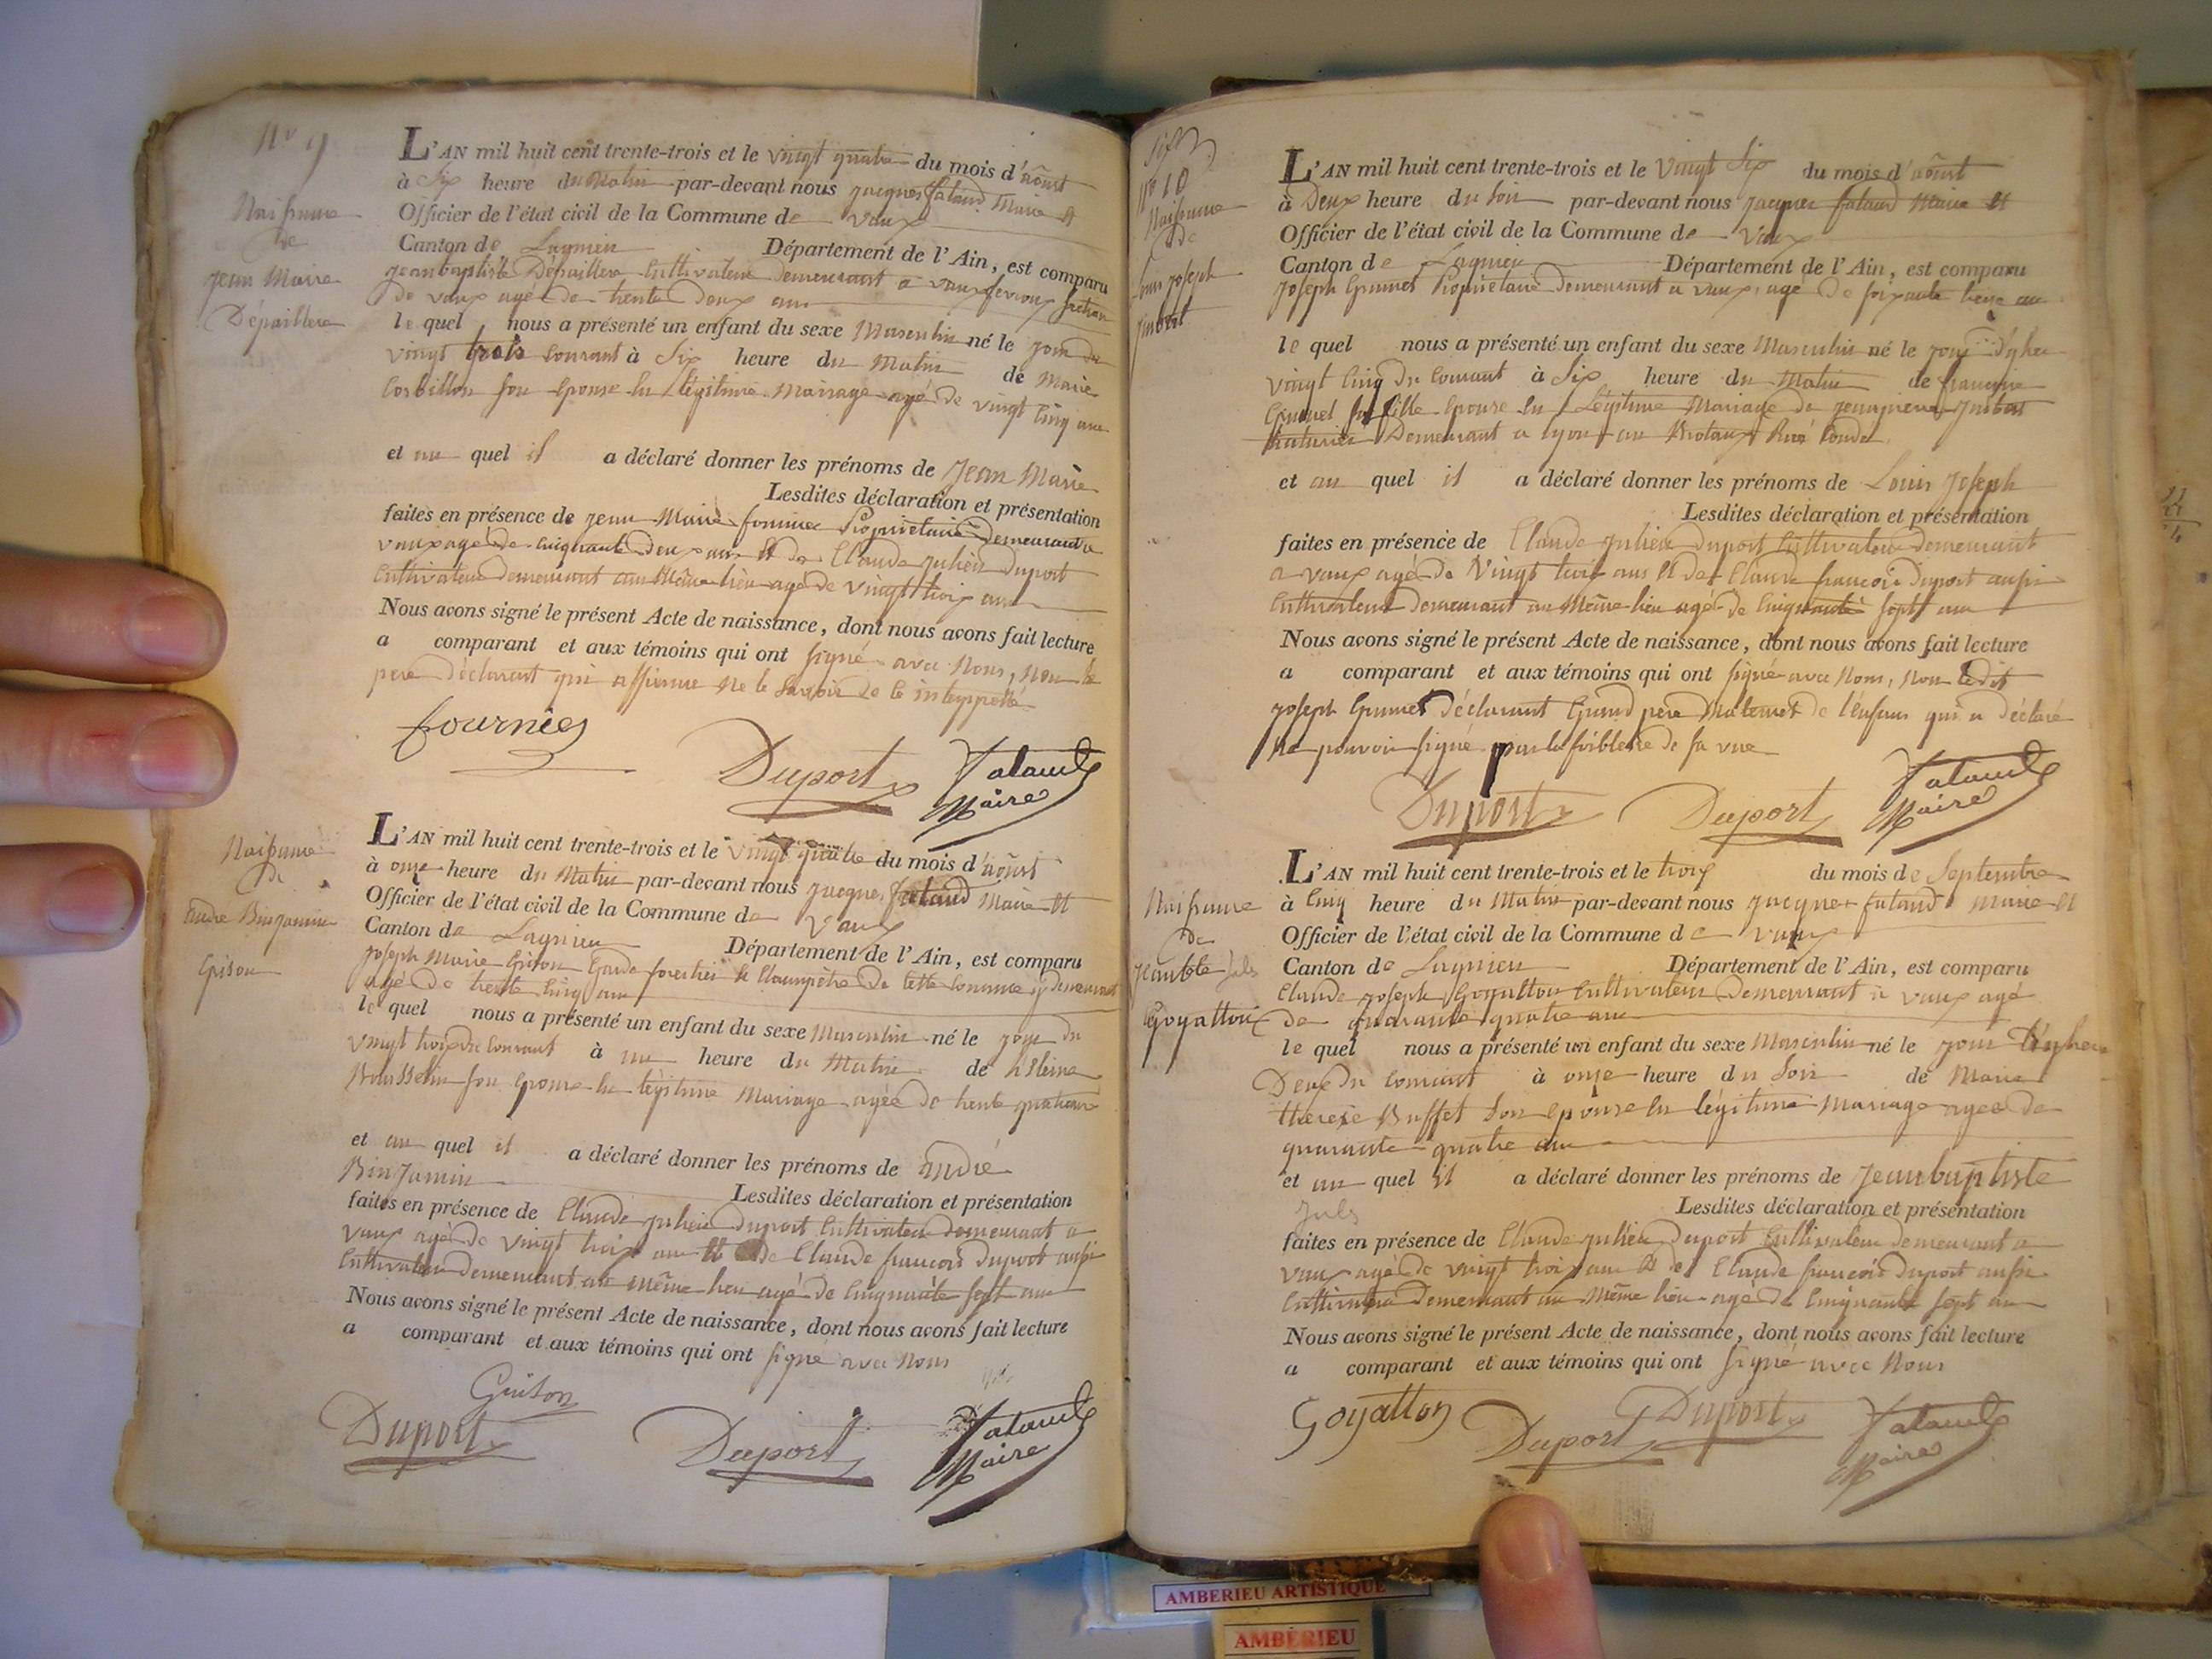 Naissance
de
Jean Marie
Dépaillere
L'AN mil huit cent trente-trois et le vingt quatre du mois d'aôust
à Six heure du Matin par-devant nous jacques falaud Maire et
Officier de l'état civil de la Commune de Vaux
Canton de Lagnieu Département de l'Ain, est comparu
jeanbaptiste Dépaillere Cultivateur demeurant a vaux
de vaux agé de trente deux ans
le quel nous a présenté un enfant du sexe Masculin né le jour du
vingt trois courant à Six heure du Matin de Marie
Corbillon son Epouse en légitime Mariage agé de vingt cinq ans
et au quel il a déclaré donner les prénoms de Jean Marie
Lesdites déclaration et présentation
faites en présence de jean Marie fournier Propriétaire demeurant a
vaux agé de cinquante deux ans et de Claude julien duport
Cultivateur demeurant au même lieu agé de vingt trois ans
Nous avons signé le présent Acte de naissance, dont nous avons fait lecture
a comparant et aux témoins qui ont signé avec Nous, non le
pere déclarant qui affirme ne le savoir de ce interppellé
fournier
Duport
falaud
Maire
Naissance
de
andré Binjamin
Grison
L'AN mil huit cent trente-trois et le vingt quatre du mois d'aôust
à onze heure du Matin par-devant nous jacques falaud Maire et
Officier de l'état civil de la Commune de Vaux
Canton de Lagnieu Département de l'Ain, est comparu
joseph Marie Grison Garde forestier et Champètre de cette Commune y demeurant
agé de trente cinq ans
le quel nous a présenté un enfant du sexe Masculin né le jour du
vingt trois du Courant à une heure du Matin de
son Epouse en légitime Mariage agée de trente quatre ans
et au quel il a déclaré donner les prénoms de andré
Binjamin Lesdites déclaration et présentation
faites en présence de Claude julien duport Cultivateur demeurant a
vaux agé de vingt trois ans et de Claude francois duport aussi
Cultivateur demeurant au même lieu agé de Cinquante sept ans
Nous avons signé le présent Acte de naissance, dont nous avons fait lecture
a comparant et aux témoins qui ont signé avec Nous
Duport
Duport
falaud
Maire
N° 10
Naissance
de
Louis joseph
L'AN mil huit cent trente-trois et le vingt Six du mois d'aôust
à Deux heure du soir par-devant nous jacques falaud Maire et
Officier de l'état civil de la Commune de Vaux
Canton de Lagnieu Département de l'Ain, est comparu
joseph Propriétaire demeurant a vaux, agé de soixante treize ans
le quel nous a présenté un enfant du sexe Masculin né le jour d'yher
vingt Cinq du Courant à Six heure du Matin de francoise
sa fille Epouse en Légitime Mariage de jeanpierre
Demeurant a Lyon au Brotaux Rue
et au quel il a déclaré donner les prénoms de Louis joseph
Lesdites déclaration et présentation
faites en présence de Claude julien duport Cultivateur demeurant
a vaux agé de Vingt trois ans et de Claude francois duport aussi
Cultivateur demeurant au Même lieu agé de Cinquante sept ans
Nous avons signé le présent Acte de naissance, dont nous avons fait lecture
a comparant et aux témoins qui ont signé avec Nous, Non ledit
joseph déclarant Grand pere Maternel de l'Enfant qui a déclaré
Ne pouvoir signé par la foiblesse de sa vue
Duport
Duport
falaud
Maire
Naissance
de
jeanbte juls
Goyatton
L'AN mil huit cent trente-trois et le trois du mois de Septembre
à Cinq heure du Matin par-devant nous jacques falaud Maire et
Officier de l'état civil de la Commune de vaux
Canton de Lagnieu Département de l'Ain, est comparu
Claude joseph Goyatton Cultivateur demeurant a vaux agé
de quarante quatre ans
le quel nous a présenté un enfant du sexe Masculin né le jour d'yher
Deux du Courant à onze heure du Soir de Marie
thérèse Buffet son epouse en légitime Mariage agée de
quarante quatre ans
et au quel il a déclaré donner les prénoms de jeanbaptiste
juls Lesdites déclaration et présentation
faites en présence de Claude julien duport Cultivateur demeurant a
vaux agé de vingt trois ans et de Claude francois duport aussi
Cultivateur demeurant au Même lieu agé de Cinquante sept ans
Nous avons signé le présent Acte de naissance, dont nous avons fait lecture
a comparant et aux témoins qui ont signé avec Nous
Goyatton
Duport
Duport
falaud
Maire
AMBERIEU ARTISTIQUE
AMBÉRIEU